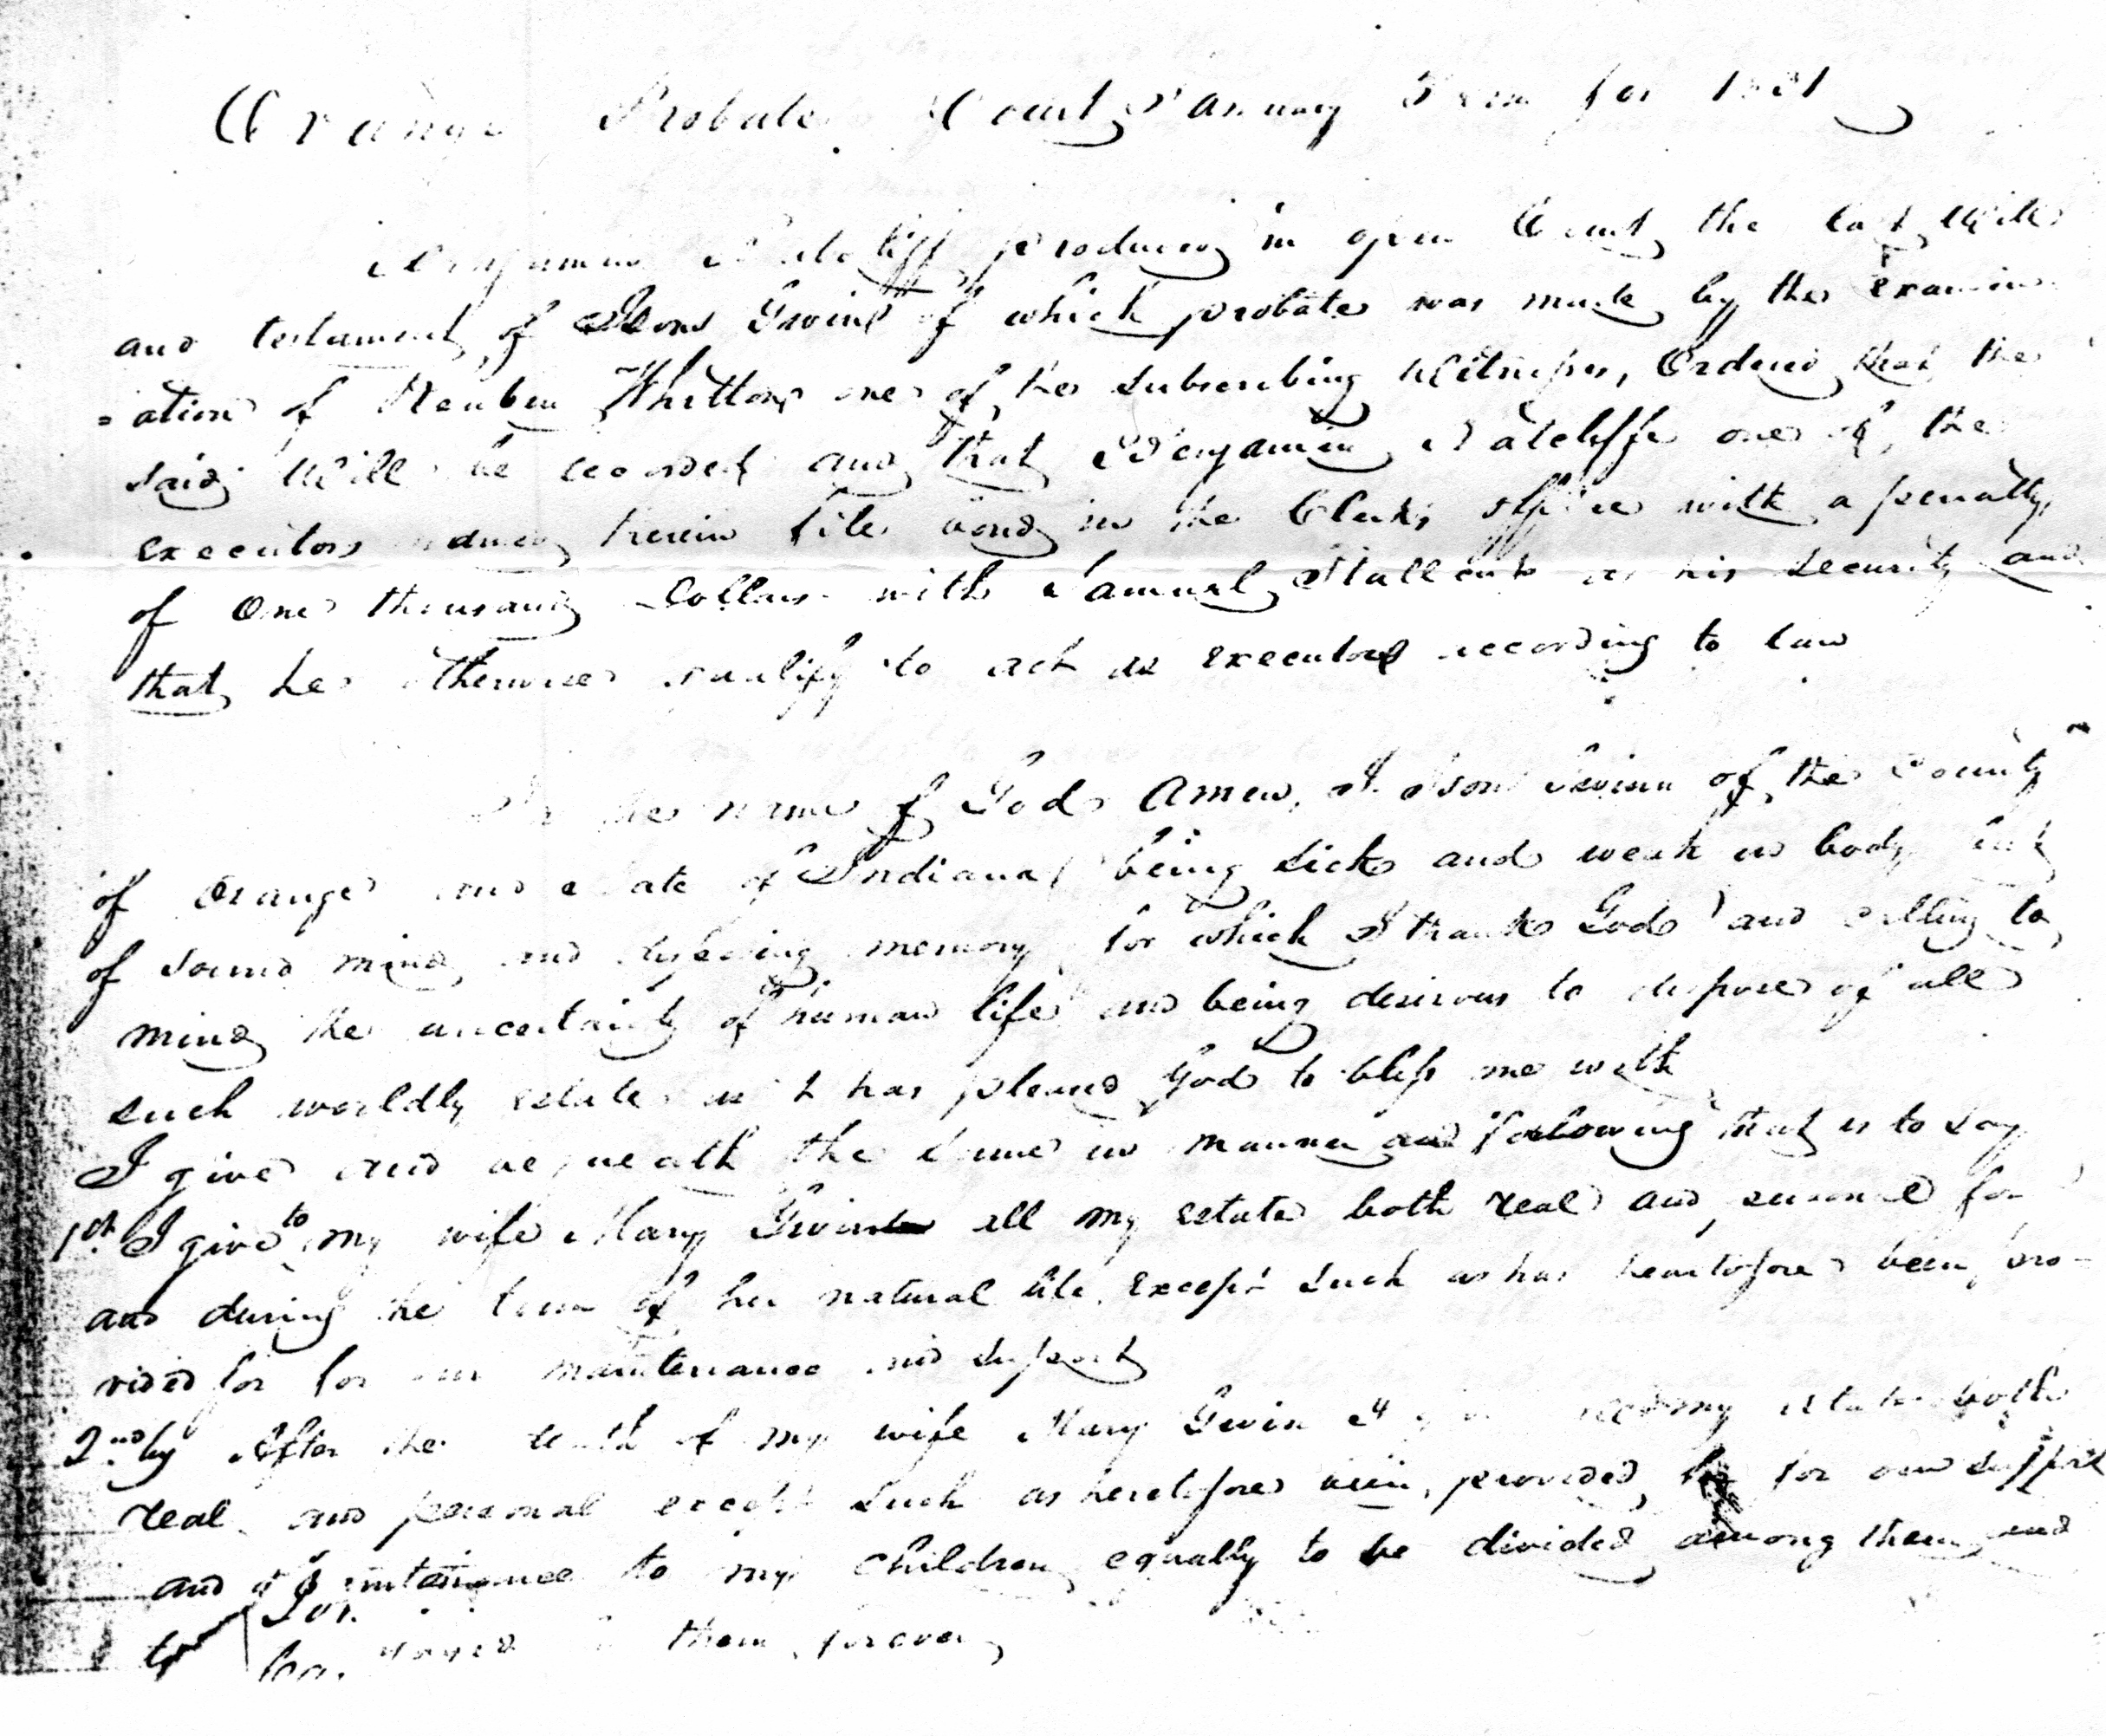 Orange Probate Court, January Term for 1831
Benjamin Ratcliff produced in open Court the last Will
and testament of Ison Gwinn of which probate was made by the examin
=ation of Reuben Whitton one of the subscribing Witnesses, Ordered that the
said Will be recorded and that Benjamin Ratcliffe one of the
executors named therein file bond in the Clerks office with a penalty
of One thousand Dollars with Samuel Stallcup as his security and
that he otherwise qualify to act as executor according to law
In the name of God Amen, I Ison Gwinn of the County
of Orange and State of Indiana being sick and weak in body but
of sound mind and disposing memory for which I thank God and calling to
mind the uncertainty of human life and being desirous to dispose of all
such worldly estate as it has pleased God to bless me with
I give and bequeath the same in manner and following that is to say
1st. I give to my wife Mary Gwinn all my estate both real and personal for
and during the term of her natural life except such as has heretofore been pro-
vided for for our maintenance and support
2ndly After the death of my wife Mary Gwin I give all my estate both
real and personal except such as heretofore been provided for our support
and maintainance to my children equally to be divided among them and
to them forever